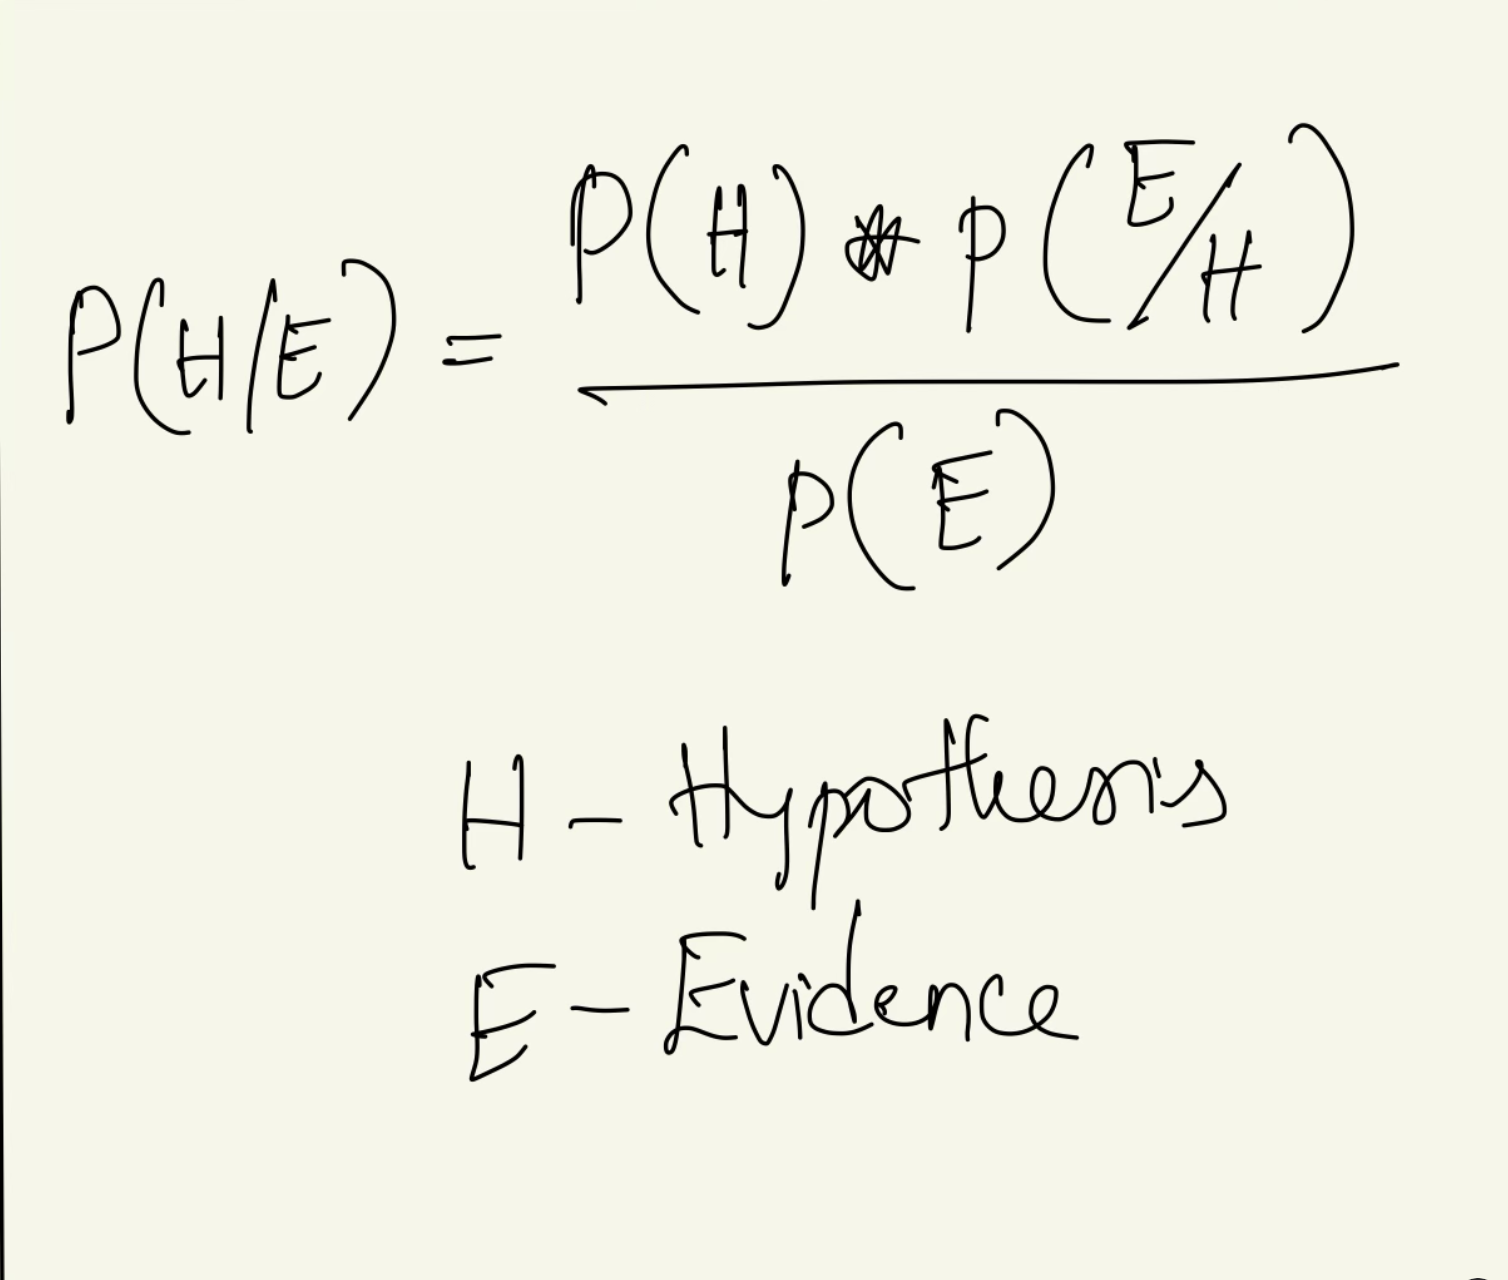 P(H/E) = P(H) * P(E/H)
P(E)
H - Hypothesis
E - Evidence